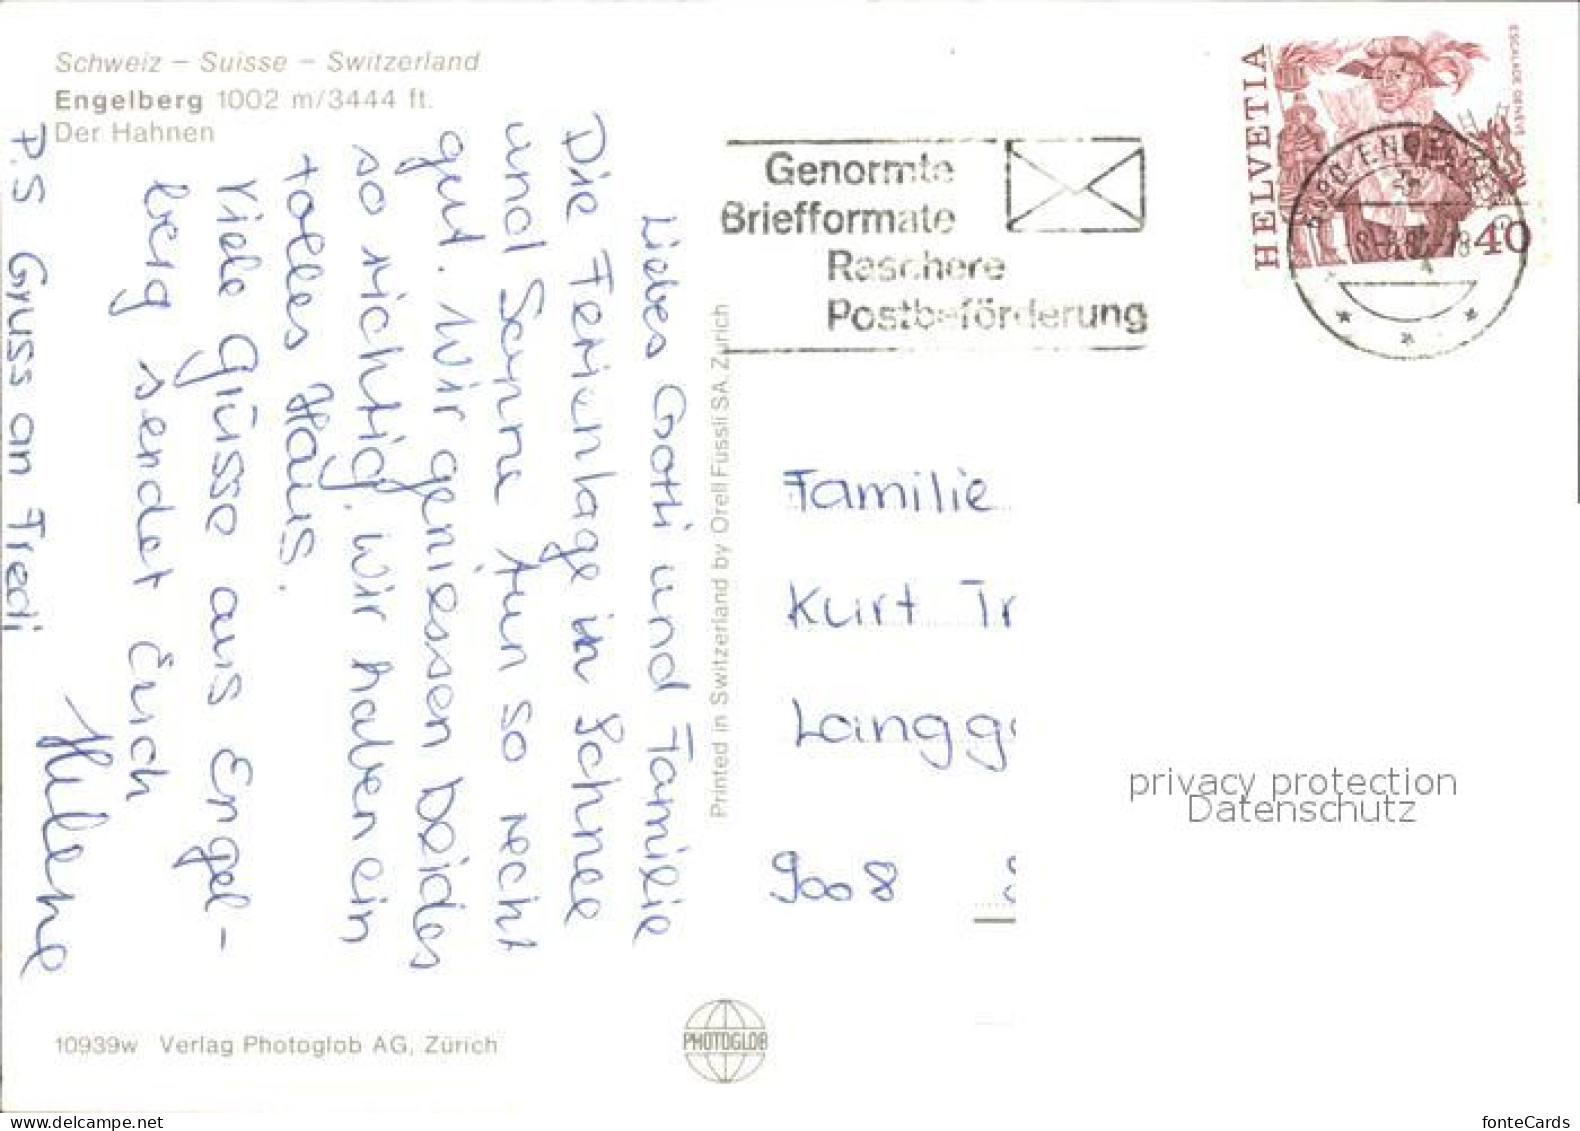 Schweiz – Suisse – Switzerland
Engelberg 1002 m/3444 ft.
Der Hahnen
Liebes Gotti und Familie
Die Ferienlage in Schnee
und Sonne tun so recht
gut. Wir geniessen beides
so richtig. Wir haben ein
tolles Haus.
Viele Grüsse aus Engel-
berg sendet Euch
Helene
P.S Gruss an Fredi
Printed in Switzerland by Orell Füssli SA Zürich
Genormte
Briefformate
Raschere
Postbeförderung
HELVETIA
ESCALADE GENEVE
40
6390 ENGELBERG
Familie
Kurt Tr
Langg
9008 S
privacy protection
Datenschutz
10939w Verlag Photoglob AG, Zürich
PHOTOGLOB
www.delcampe.net
fonteCards